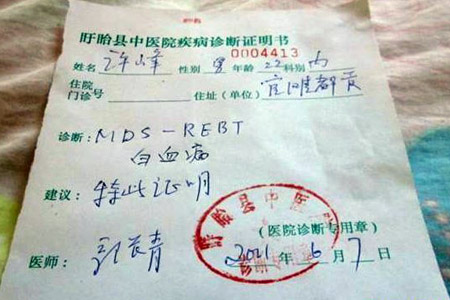 盱眙县中医院疾病诊断证明书
0004413
姓名 许峰 性别 男 年龄 22 科别 内
住院
门诊号 住址(单位)
诊断:MDS-REBT
白血病
建议:特此证明
盱眙县中医
(医院诊断专用章)
医师: 青 2021年6月7日